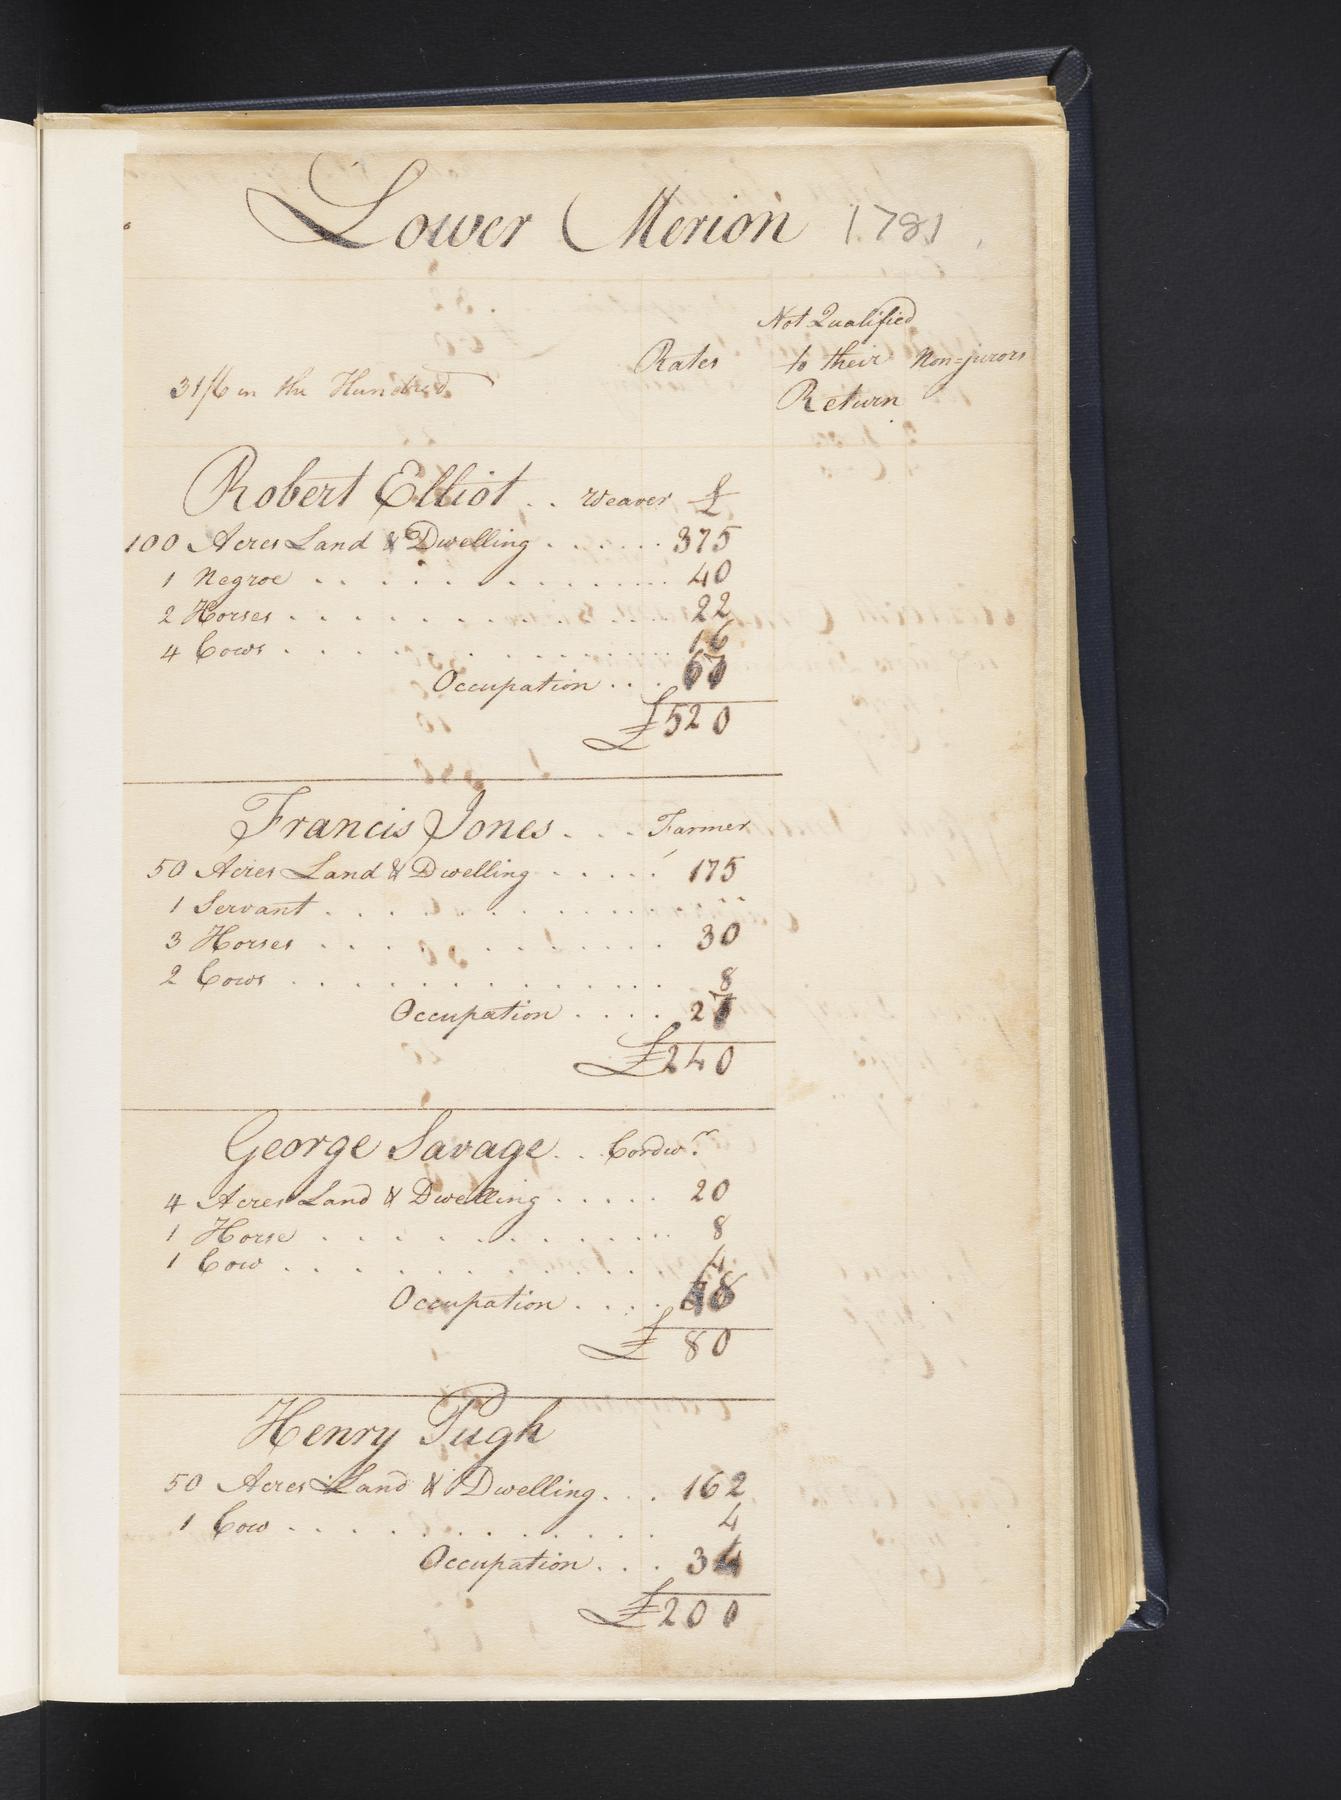 Lower Merion 1781
Not Qualified
Rates to their Non-jurors
31/6 in the Hundred Return
Robert Elliot .. Weaver £
100 Acres Land & Dwelling ...... 375
1 Negroe ............. 40
2 Horses ............. 22
4 Cows ............. 16
Occupation ... 67
£520
Francis Jones ... Farmer
50 Acres Land & Dwelling ..... 175
1 Servant ............. ...
3 Horses ............. 30
2 Cows ............. 8
Occupation .... 27
£240
George Savage .. Cordwr.
4 Acres Land & Dwelling ..... 20
1 Horse ............. 8
1 Cow ............. 4
Occupation .... 48
£ 80
Henry Pugh
50 Acres Land & Dwelling ... 162
1 Cow ............. 4
Occupation ... 34
£200